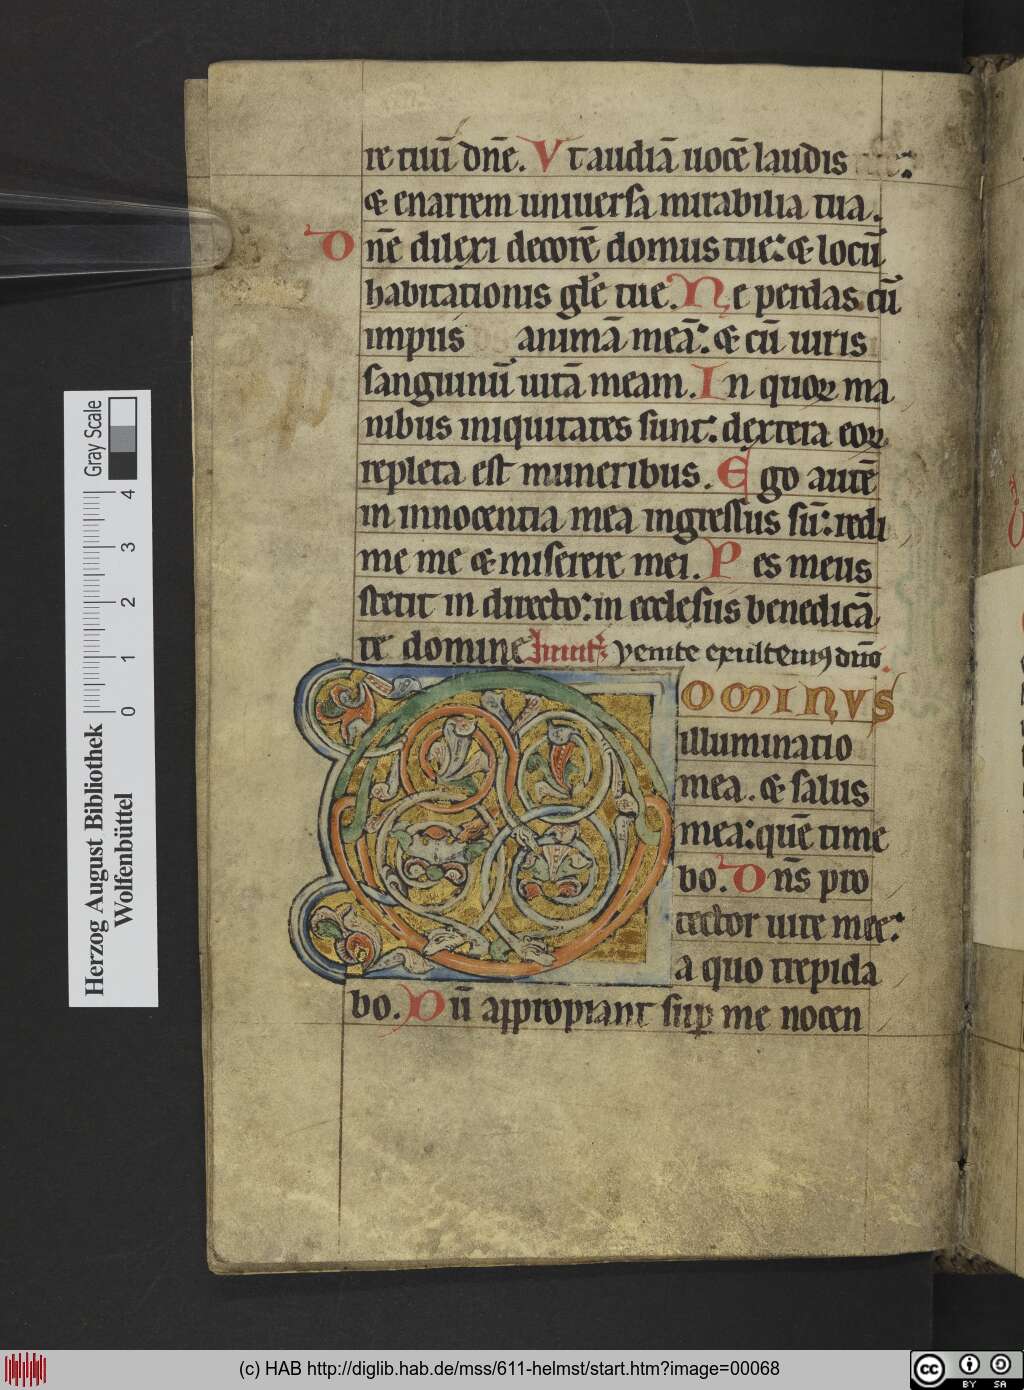 re tuū dn̄e. Vt audiā uocē laudis
& enarrem uniuersa mirabilia tua.
Dn̄e dilexi decorē domus tue: & locū
habitationis gl̄e tue. Ne perdas cū
impiis animā meā: & cū uiris
sanguinū uitā meam. In quoꝝ ma
nibus iniquitates sunt: dextera eoꝝ
repleta est muneribus. Ego autē
in innocentia mea ingressus sū: redi
me me & miserere mei. Pes meus
stetit in directo: in ecclesiis benedicā
te domine Inuit. venite exultemꝰ dn̄o.
DOMINVS
illuminatio
mea. & salus
mea: quē time
bo. Dn̄s pro
tector uite mee:
a quo trepida
bo. Dū appropiant suꝑ me nocen
Gray Scale
0 1 2 3 4
Herzog August Bibliothek
Wolfenbüttel
(c) HAB http://diglib.hab.de/mss/611-helmst/start.htm?image=00068
cc BY SA